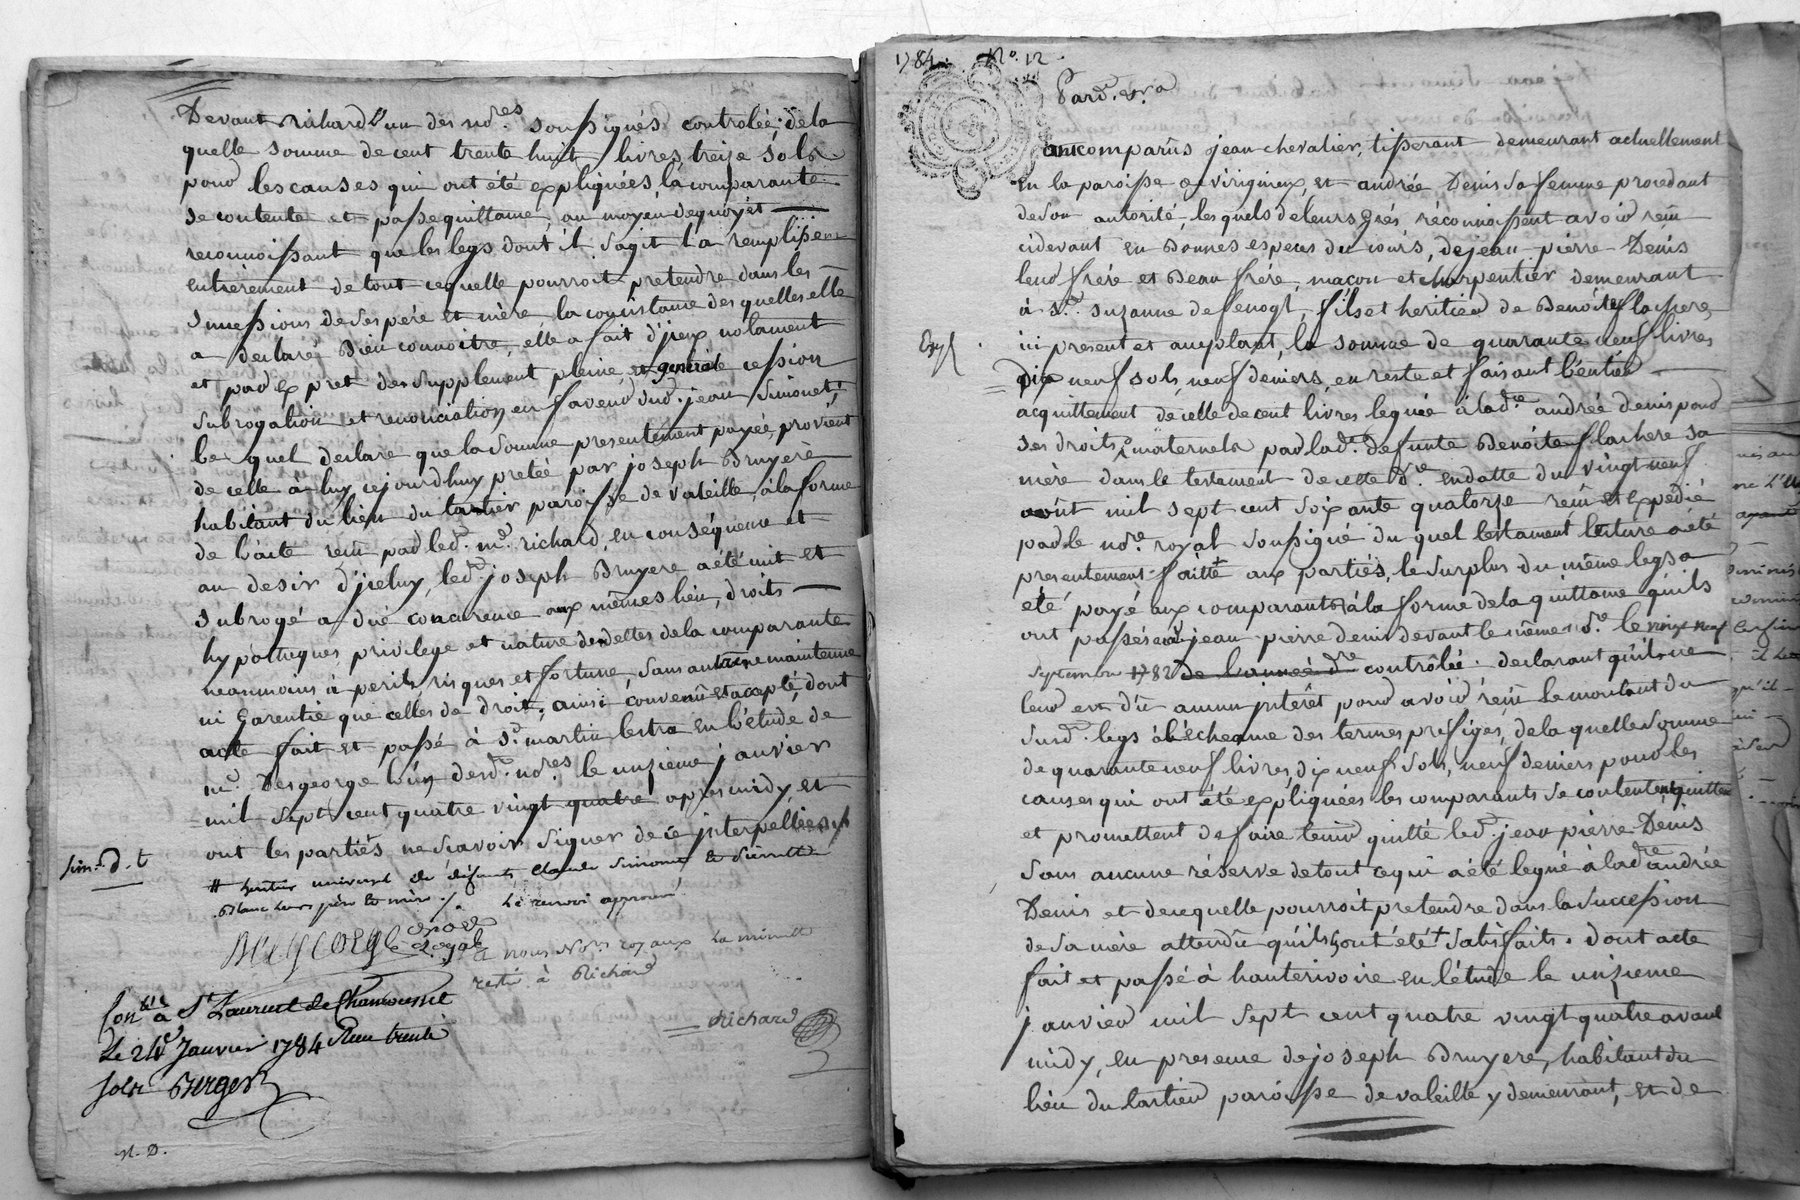 Devant Richard l'un des no.res soussignés controlée; de la
quelle somme de cent trente huit livres, treize sols
pour les causes qui ont été expliquées, la comparante
se contente et passe quittance, au moyen de quoy et
reconnoissant que les legs dont il s'agit la remplissent
entièrement de tout ce quelle pourroit pretendre dans les
successions de ses père et mère la consistance des quelles elle
a declaré bien connoitre, elle a fait d'yceux nolament
et par expret des supplement pleine, et generale cession
subrogation et renonciation en faveur dud. jean Simonet,
le quel declare que la somme presentement payée, provient
de celle à luy cejourdhuy pretée par joseph Bruyere
habitant du lieu du tartier paroisse de valeille, à la forme
de l'acte reçu par led. me. richard, en conséquence et
au desir d'jceluy, led. joseph Bruyere a été mit et
subrogé a düe concurence aux mêmes lieu, droits
hypotheques, privilege et nature de dettes de la comparante
neanmoins à perils, risques et fortune, sans autre maintenue
ni garentie que celles de droit; ainsi convenu et accepté, dont
acte fait et passé à St. martin lestra en l'étude de
me. Desgeorge l'un desd. no.res le unzieme janvier
mil sept cent quatre vingt quatre après midy, et
ont les partiés ne scavoir signer de ce jnterpellées
sim. d. t
# heritier universel de défunts Claude Simonet et Pierrette
Blanc leurs père et mère. Le renvoi approuvé
a nous No.res royaux La minutte
restée à Richard
Richard
Con.lé à St Laurent de Chamousset
Le 24e Janvier 1784 Reçu trente
sols Berger
N. D.
1784. No. 12.
Pard. &.ra
sont comparus jean chevalier, tisserant demeurant actuellement
en la paroisse de virigneux, et andrée Denis sa femme procedant
de son autorité, les quels de leurs grés réconnoissent avoir reçu
cidevant en bonnes especes du cours, de jean-pierre Denis
leur frére et Beau frére, macon et charpentier demeurant
à Ste. suzanne de fenogt, fils et heritier de Benoite flachere,
ici present et acceptant, la somme de quarante neuf livres
Exp.
dix neuf sols, neuf deniers, en reste et faisant l'entier
acquittement de celle de cent livres leguée à lad.te andrée denis pour
ses droits maternels par lad.e defunte Benoite flachere sa
mère dans le testament de cette d.re en datte du vingt neuf
août mil sept cent soixante quatorze reçu et expedié
par le no.re royal soussigné du quel testament lecture a été
presentement faitte aux partiés, le surplus du même legs a
eté payé aux comparants à la forme de la quittance quils
ont passés aud. jean-pierre denis devant le même no.re le vingt neuf
septembre 1782 de l'année d.re contrôlé. declarant quil ne
leur est dû aucun jnterêt pour avoir reçu le montant du
susd. legs à l'écheance des termes prefigés, de la quelle somme
de quarante neuf livres, dix neuf sols, neuf deniers pour les
causes qui ont été expliquées les comparants se contentent, quittent
et promettent de faire tenir quitté led. jean pierre Denis
sans aucune réserve de tout ce qui a été legué à lad.te andrée
Denis et de ce quelle pourroit pretendre dans la succession
de sa mère attendu quils sont été satisfaits. dont acte
fait et passé à hauterivoire en l'étude le unzieme
janvier mil sept cent quatre vingt quatre avant
midy, en presence de joseph Bruyere, habitant du
lieu du tartier paroisse de valeille y demeurant, et de